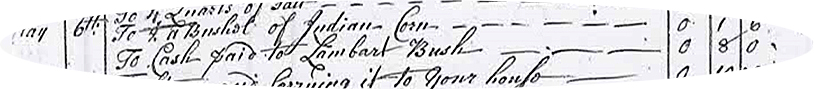 To 4 Quarts of Salt
May 6th To ½ a Bushol of Indian Corn 0 1 6
To Cash paid to Lambart Bush 0 8 0
carrying it to Your houso